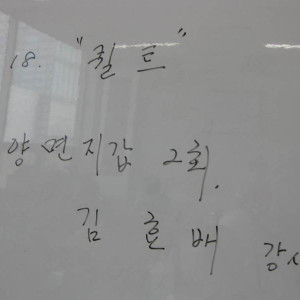 18. "퀼트"
양면지갑 2회.
김효배 강사